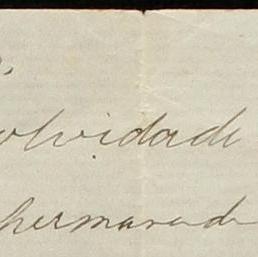 olvidade
hermana de